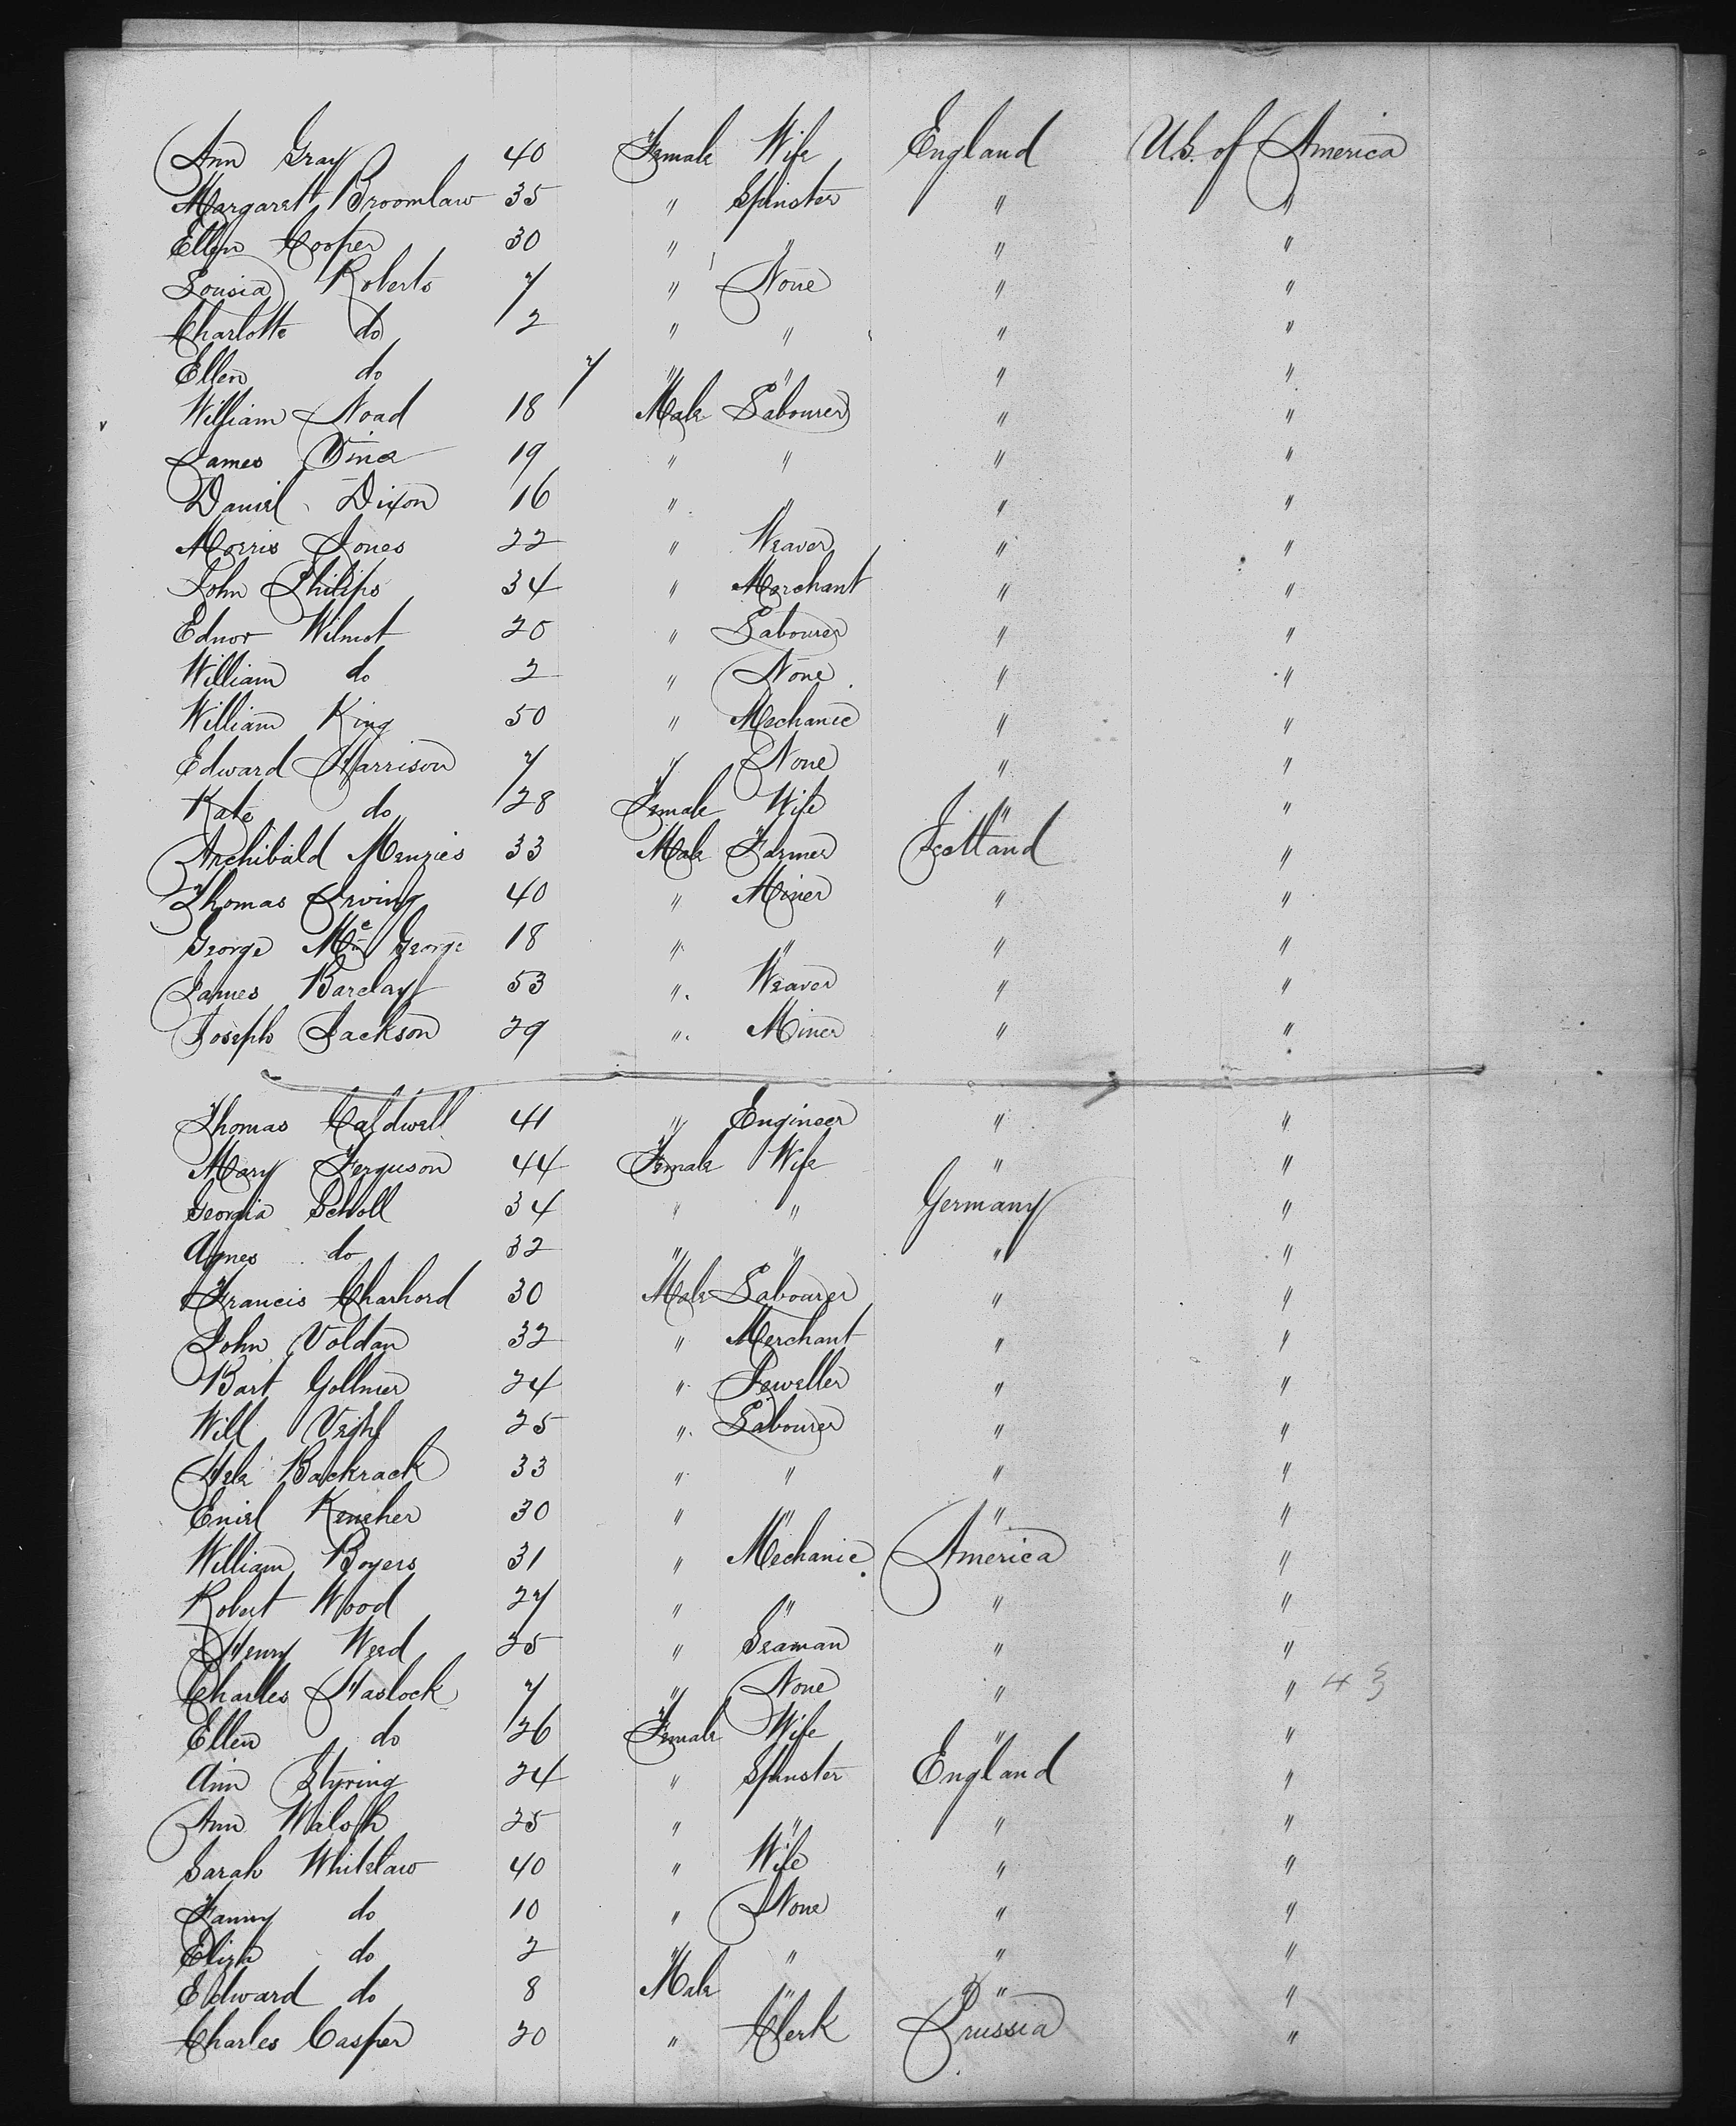 Ann Gray 40 Female Wife England U.S. of America
Margaret Broomlaw 35 " Spinster " "
Ellen Cooper 30 " " " "
Lousia Roberts 7 " None " "
Charlotte do 2 " " " "
Ellen do 7 " " " "
William Noad 18 Male Labourer " "
James Vine 19 " " " "
Daniel Dixon 16 " " " "
Morris Jones 22 " Weaver " "
John Philips 34 " Merchant " "
Ednor Wilmot 20 " Labourer " "
William do 2 " None " "
William King 50 " Mechanic " "
Edward Harrison 7 " None " "
Kate do 28 Female Wife " "
Archibald Menzies 33 Male Farmer Scotland "
Thomas Irving 40 " Miner " "
George Mc George 18 " " " "
James Barclay 53 " Weaver " "
Joseph Jackson 29 " Miner " "
Thomas Caldwell 41 " Engineer " "
Mary Ferguson 44 Female Wife " "
Georgia Scholl 34 " " Germany "
Agnes do 32 " " " "
Francis Charhord 30 Male Labourer " "
John Voldan 32 " Merchant " "
Bart Gollmer 24 " Jeweller " "
Will 25 " Labourer " "
Backrack 33 " " " "
30 " " " "
William Boyers 31 " Mechanic America "
Robert Wood 27 " " " "
Henry Weed 25 " Seaman " "
Charles Haslock 7 " None " " 4
Ellen do 26 Female Wife " "
Ann Styring 24 " Spinster England "
Ann Walsh 25 " " " "
Sarah Whitelaw 40 " Wife " "
Fanny do 10 " None " "
Eliza do 2 " " " "
Edward do 8 Male " " "
Charles Casper 20 " Clerk Prussia "